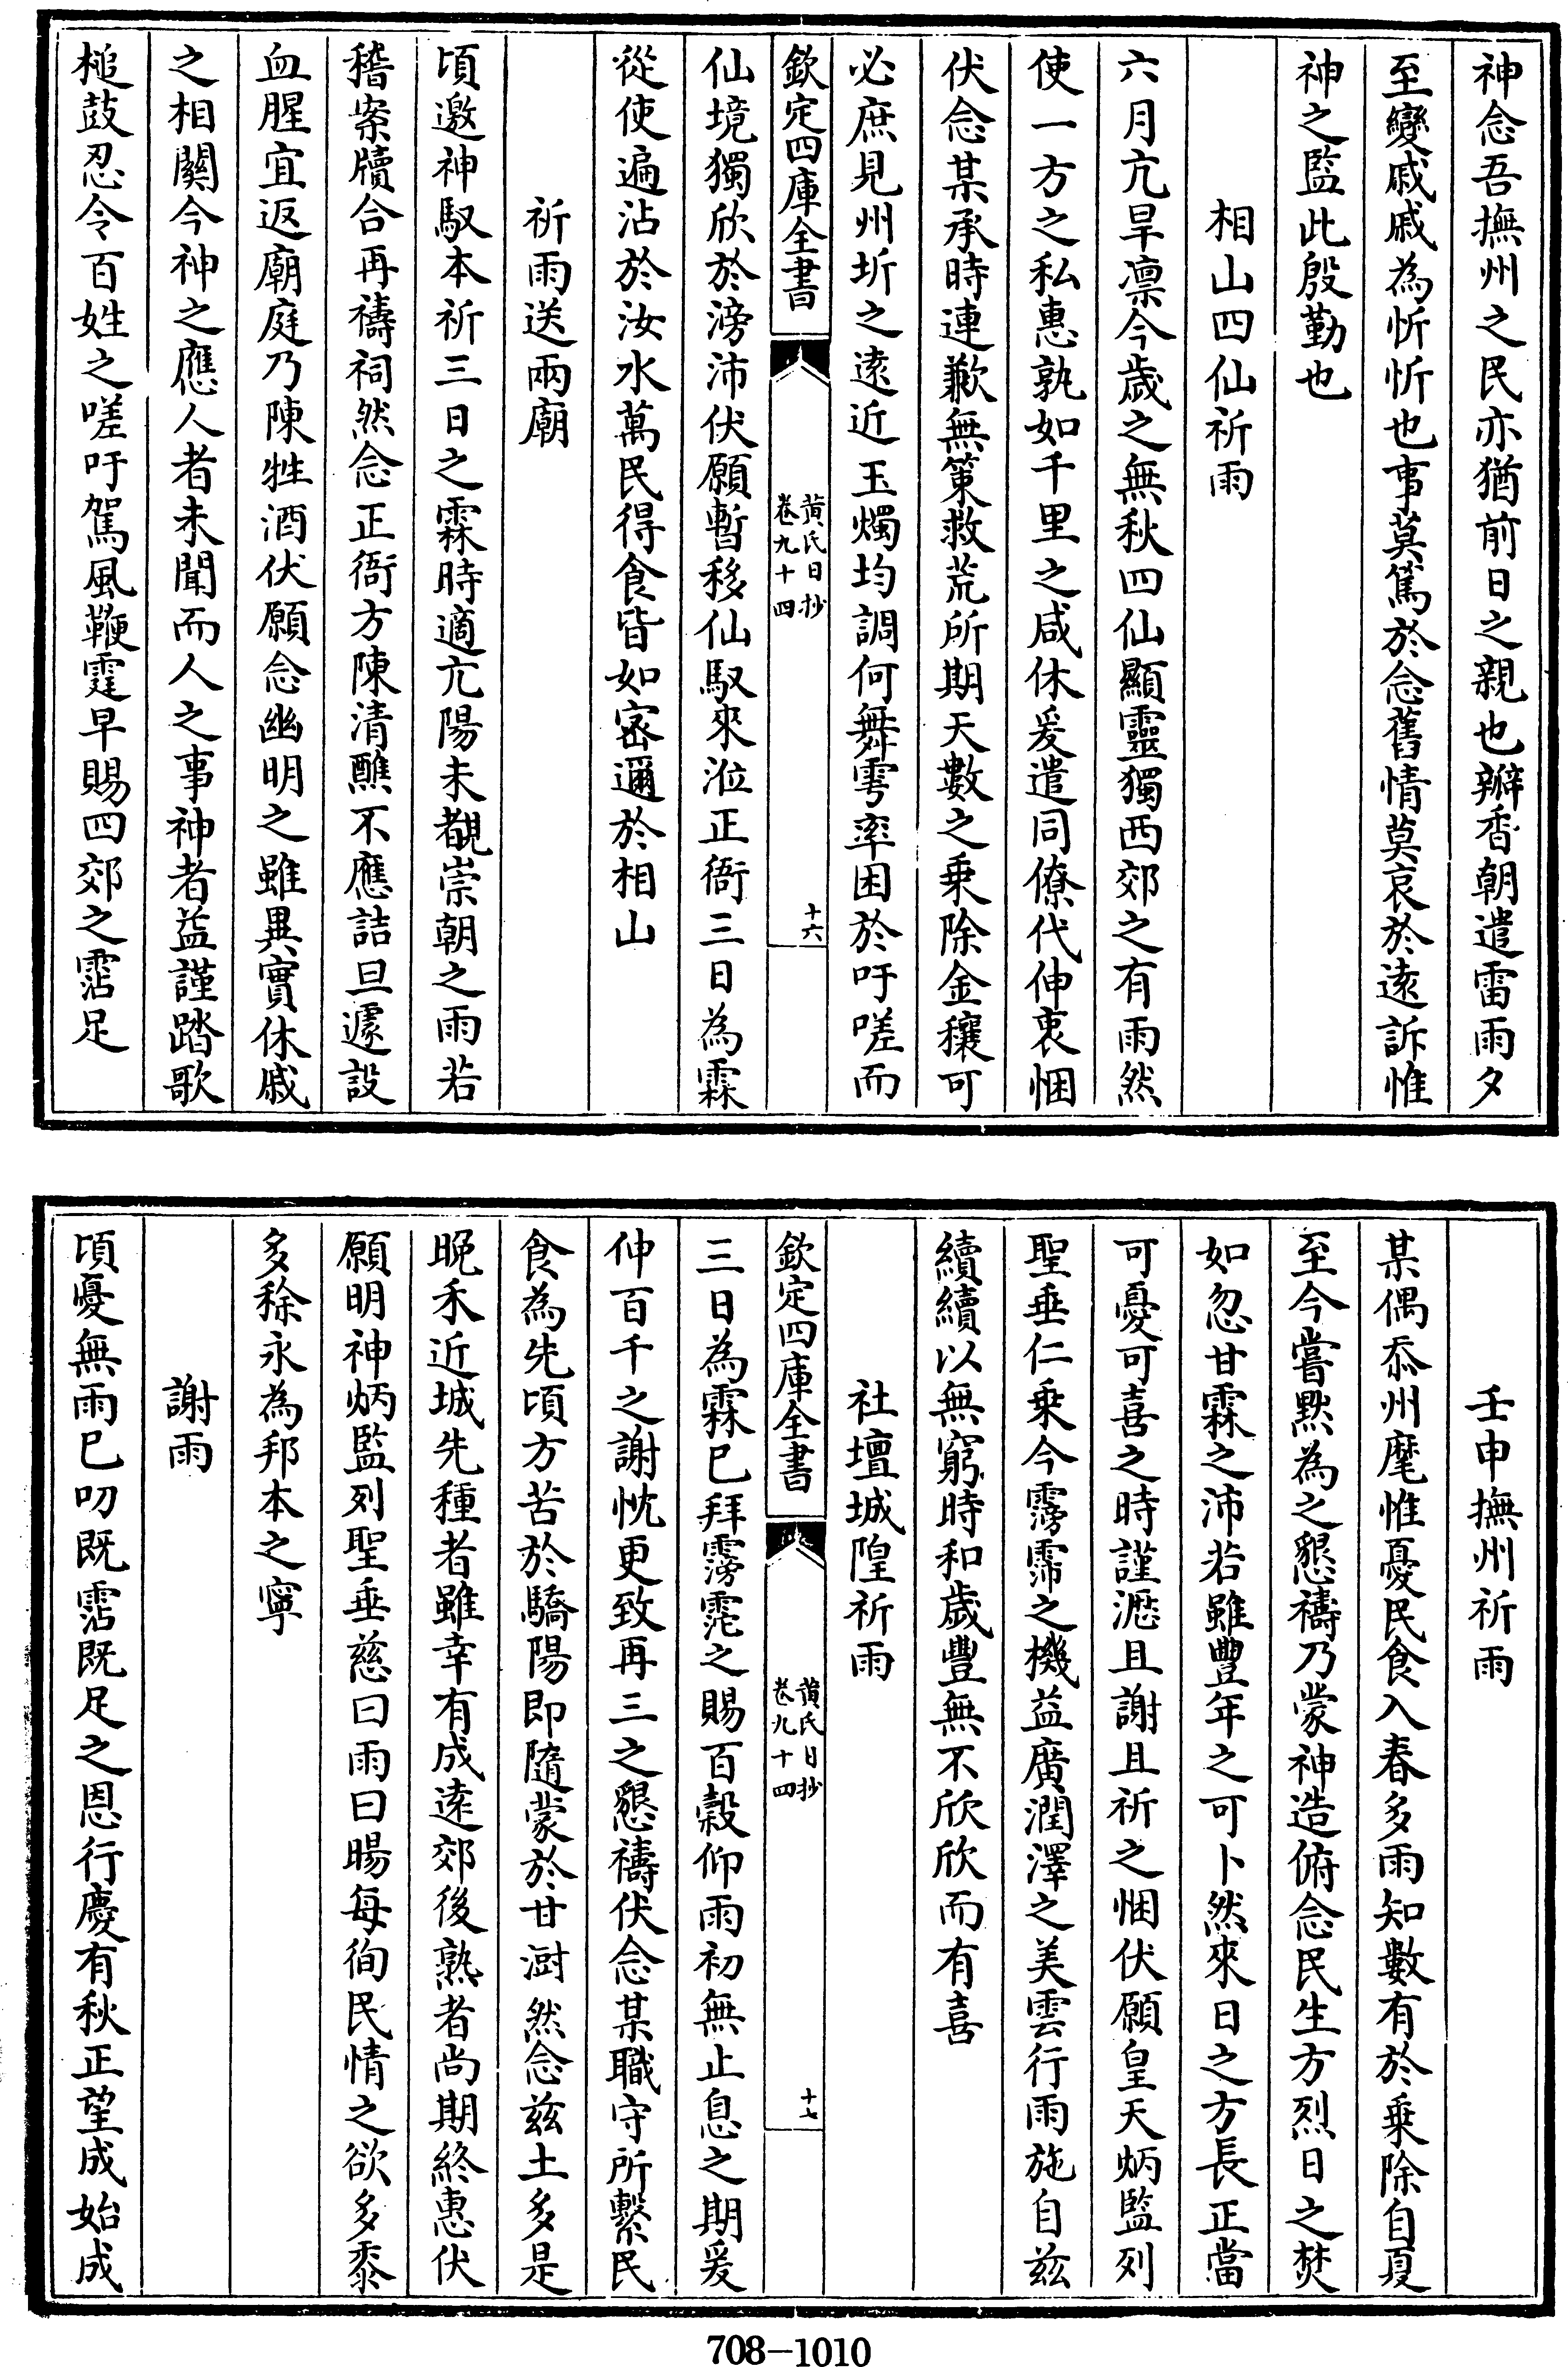 神念吾撫州之民亦猶前日之親也辦香朝遣雷雨夕
至變戚戚為忻忻也事莫篤於念舊情莫哀於逺訴惟
神之監此殷勤也
相山四仙祈雨
六月亢旱凛今歲之無秋四仙顯靈獨西郊之有雨然
使一方之私惠孰如千里之咸休爰遣同僚代伸衷悃
伏念某承時連歉無策救荒所期天數之乗除金穰可
必庶見州圻之逺近玉燭均調何舞雩率困於吁嗟而
欽定四庫全書
黄氏日抄
卷九十四
十六
仙境獨欣於滂沛伏願暫移仙馭來涖正衙三日為霖
從使遍沾於汝水萬民得食皆如宻邇於相山
祈雨送兩廟
頃邀神馭本祈三日之霖時適亢陽未覩崇朝之雨若
稽案牘合再禱祠然念正衙方陳清醮不應詰旦遽設
血腥宜返廟庭乃陳牲酒伏願念幽明之雖異實休戚
之相闗今神之應人者未聞而人之事神者益謹踏歌
槌鼓忍令百姓之嗟吁駕風鞭霆早賜四郊之霑足
壬申撫州祈雨
某偶忝州麾惟憂民食入春多雨知數有於乗除自夏
至今嘗黙為之懇禱乃蒙神造俯念民生方烈日之焚
如忽甘霖之沛若雖豐年之可卜然來日之方長正當
可憂可喜之時謹瀝且謝且祈之悃伏願皇天炳監列
聖垂仁乗今霶霈之機益廣潤澤之美雲行雨施自兹
續續以無窮時和歲豐無不欣欣而有喜
社壇城隍祈雨
欽定四庫全書
黄氏日抄
卷九十四
十七
三日為霖已拜霶霑之賜百榖仰雨初無止息之期爰
伸百千之謝忱更致再三之懇禱伏念某職守所繫民
食為先頃方苦於驕陽即隨蒙於甘澍然念兹土多是
晚禾近城先種者雖幸有成逺郊後熟者尚期終惠伏
願明神炳監列聖垂慈曰雨曰暘每徇民情之欲多黍
多稌永為邦本之寧
謝雨
頃憂無雨已叨既霑既足之恩行慶有秋正望成始成
708-1010